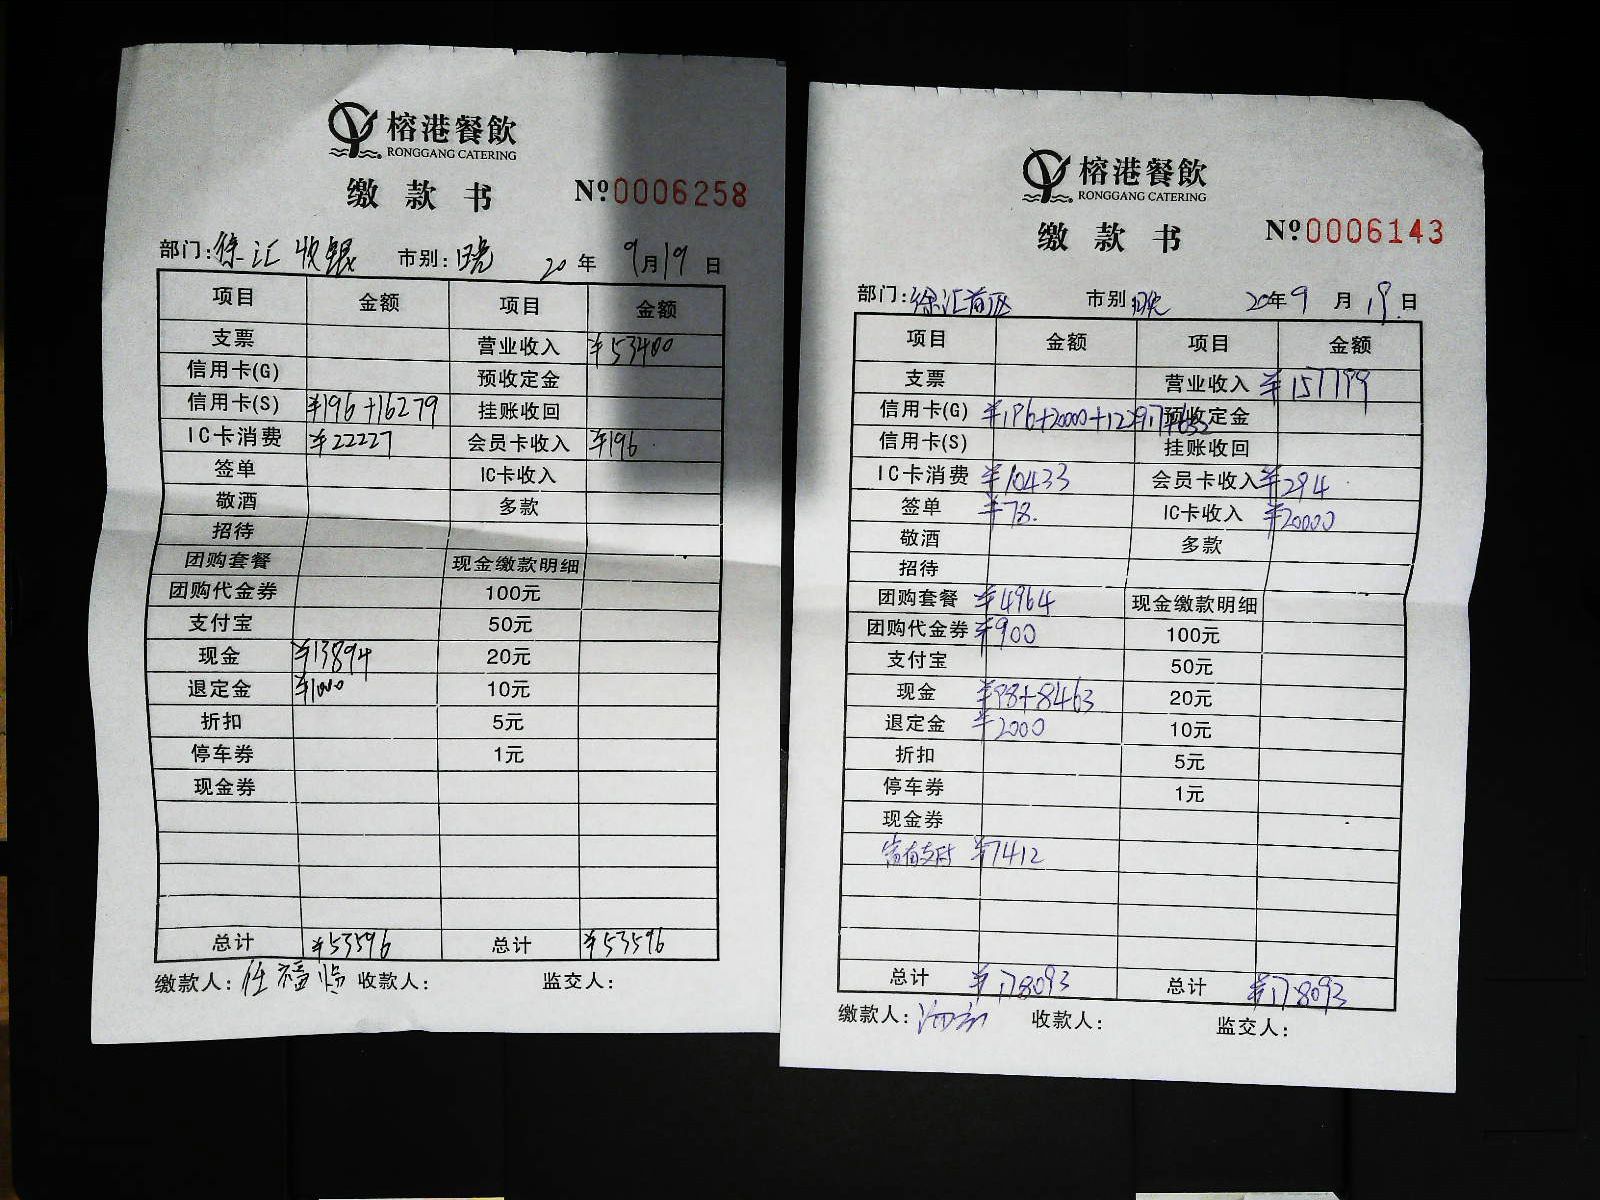 榕港餐飲
RONGGANG CATERING
缴款书 №0006258
部门:徐汇 收银 市别:晚 20年 9月19日
项目 金额 项目 金额
支票 营业收入 ¥53400
信用卡(G) 预收定金
信用卡(S) ¥196+16279 挂账收回
IC卡消费 ¥22227 会员卡收入 ¥196
签单 IC卡收入
敬酒 多款
招待
团购套餐 现金缴款明细
团购代金券 100元
支付宝 50元
现金 ¥13894 20元
退定金 ¥1000 10元
折扣 5元
停车券 1元
现金券
总计 ¥53596 总计 ¥53596
缴款人: 收款人: 监交人:
榕港餐飲
RONGGANG CATERING
缴款书 №0006143
部门:徐汇 市别: 20年9月19日
项目 金额 项目 金额
支票 营业收入 ¥157799
信用卡(G) ¥196+20000+ 预收定金
信用卡(S) 挂账收回
IC卡消费 ¥10433 会员卡收入 ¥294
签单 ¥78. IC卡收入 ¥20000
敬酒 多款
招待
团购套餐 ¥4964 现金缴款明细
团购代金券 ¥900 100元
支付宝 50元
现金 ¥98+8463 20元
退定金 ¥2000 10元
折扣 5元
停车券 1元
现金券
支付 ¥7412
总计 ¥178093 总计 ¥178093
缴款人: 收款人: 监交人: